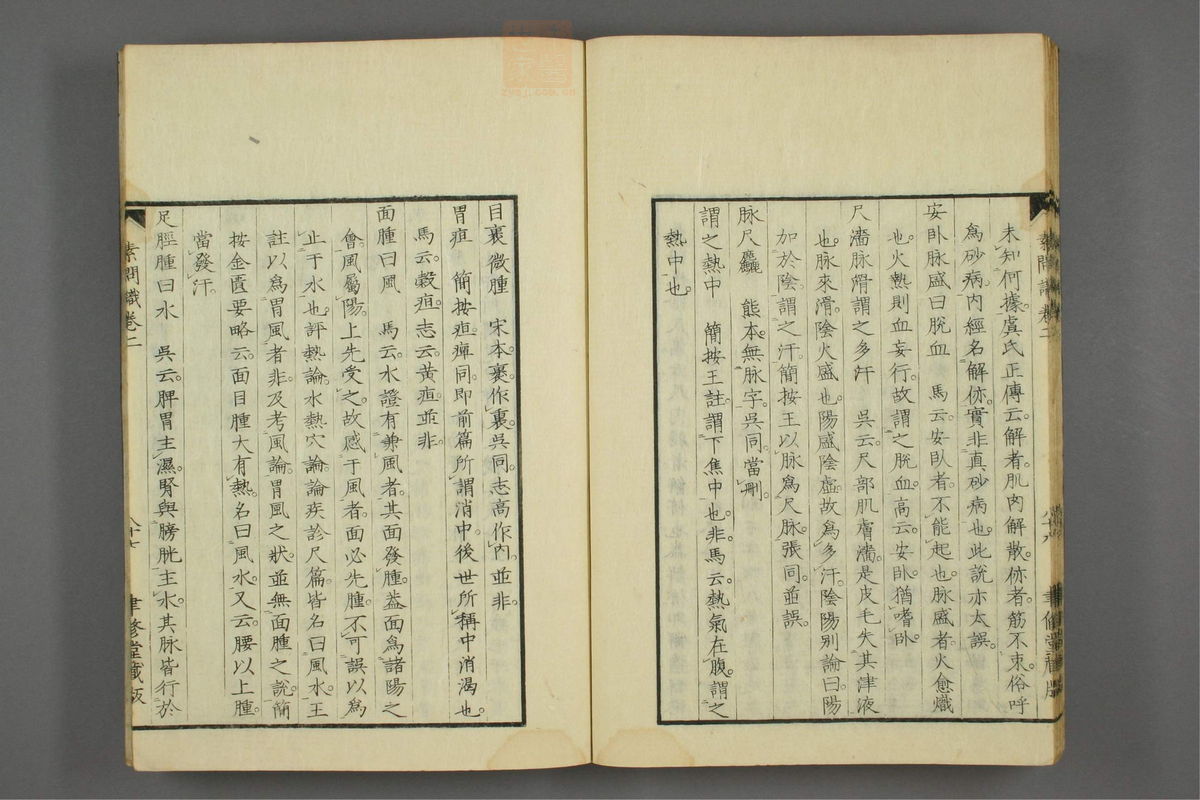 未知何據。虞氏正傳云。解者。肌肉解散。㑊者。筋不束。俗呼
爲砂病。内經名解㑊。實非真砂病也。此説亦太誤。
安卧脉盛曰脱血 馬云。安臥者。不能起也。脉盛者。火愈熾
也。火熱則血妄行。故謂之脱血。高云。安卧。猶嗜卧
尺濇脉滑謂之多汗 吳云。尺部肌膚濇。是皮毛失其津液
也。脉來滑。陰火盛也。陽盛陰虚。故爲多汗。陰陽別論曰。陽
加於陰。謂之汗。簡按王以脉爲尺脉。張同。並誤。
脉尺麤 熊本。無脉字。吳同。當刪。
謂之熱中 簡按王註。謂下焦中也。非。馬云。熱氣在腹。謂之
熱中也。
素問識卷二
聿修堂藏版
目裹微腫 宋本。裹作裏。吳同。志高作内。並非。
胃疸 簡按疸癉同。即前篇所謂消中。後世所稱中消渴也。
馬云。穀疸。志云。黄疸。並非。
面腫曰風 馬云。水證有兼風者。其面發腫。蓋面爲諸陽之
會。風屬陽。上先受之。故感于風者。面必先腫。不可誤以爲
止于水也。評熱論。水熱穴論。論疾診尺篇。皆名曰風水。王
註以爲胃風者。非。及考風論。胃風之狀。並無面腫之説。簡
按金匱要略云。面目腫大有熱。名曰風水。又云。腰以上腫。
當發汗。
足脛腫曰水 吳云。脾胃主濕。腎與膀胱主水。其脉皆行於
素問識卷二
八十七
聿修堂藏版